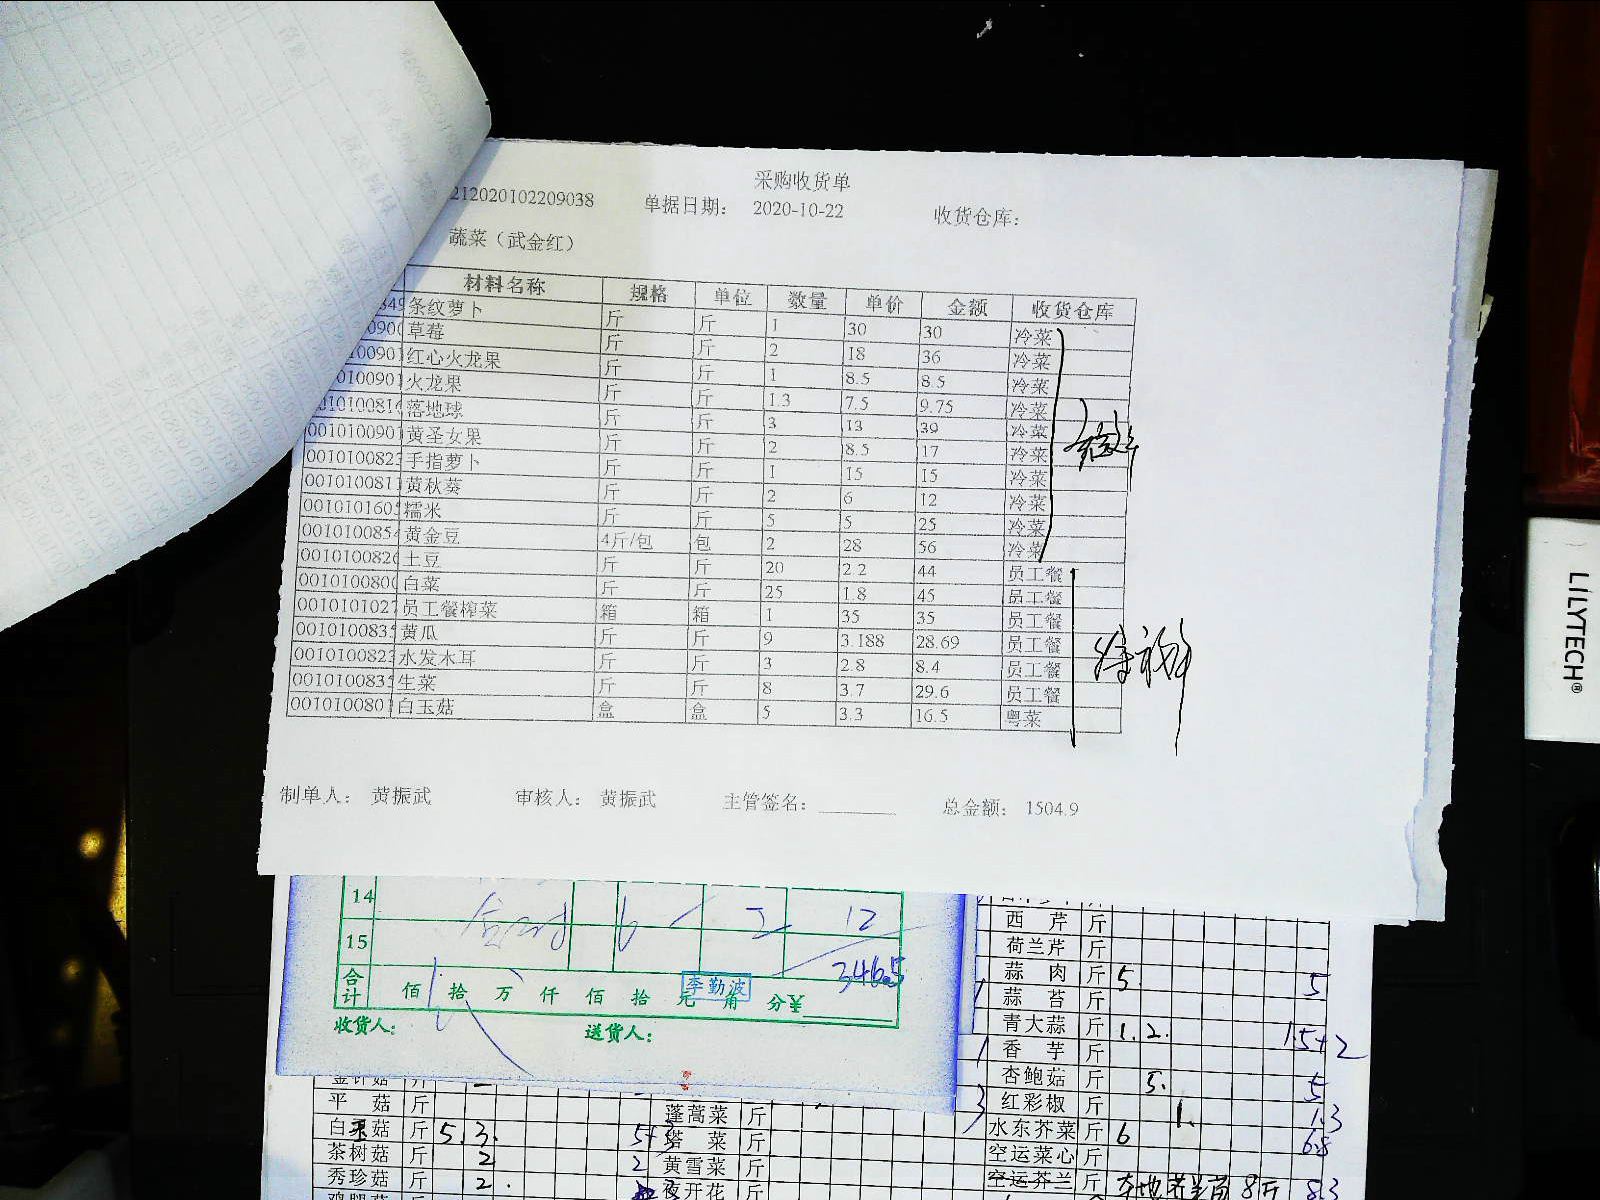 采购收货单
212020102209038 单据日期： 2020-10-22 收货仓库：
蔬菜（武金红）
材料名称 规格 单位 数量 单价 金额 收货仓库
条纹萝卜 斤 斤 1 30 30 冷菜
草莓 斤 斤 2 18 36 冷菜
红心火龙果 斤 斤 1 8.5 8.5 冷菜
0100901 火龙果 斤 斤 1.3 7.5 9.75 冷菜
落地球 斤 斤 3 13 39 冷菜
001010090 黄圣女果 斤 斤 2 8.5 17 冷菜
001010082 手指萝卜 斤 斤 1 15 15 冷菜
001010081 黄秋葵 斤 斤 2 6 12 冷菜
001010160 糯米 斤 斤 5 5 25 冷菜
001010085 黄金豆 4斤/包 包 2 28 56 冷菜
001010082 土豆 斤 斤 20 2.2 44 员工餐
001010080 白菜 斤 斤 25 1.8 45 员工餐
001010102 员工餐榨菜 箱 箱 1 35 35 员工餐
001010083 黄瓜 斤 斤 9 3.188 28.69 员工餐
001010082 水发木耳 斤 斤 3 2.8 8.4 员工餐
001010083 生菜 斤 斤 8 3.7 29.6 员工餐
001010080 白玉菇 盒 盒 5 3.3 16.5 粤菜
制单人： 黄振武 审核人： 黄振武 主管签名： 总金额： 1504.9
LILYTECH®
14 6 2 12
15 346.5
合计 佰 拾 万 仟 佰 拾 元 角 分¥
李勤波
收货人： 送货人：
西芹 斤
荷兰芹 斤
蒜肉 斤 5 5
蒜苔 斤
青大蒜 斤 1. 2. 1.5+2
香芋 斤
杏鲍菇 斤 5. 5
红彩椒 斤 1. 1.3
水东芥菜 斤 6 6.8
空运菜心 斤
空运芥兰 斤 8斤 8.3
平菇 斤
白菇 斤 5. 3.
茶树菇 斤 2 2
秀珍菇 斤 2.
蓬蒿菜 斤
塔菜 斤
黄雪菜 斤
夜开花 斤